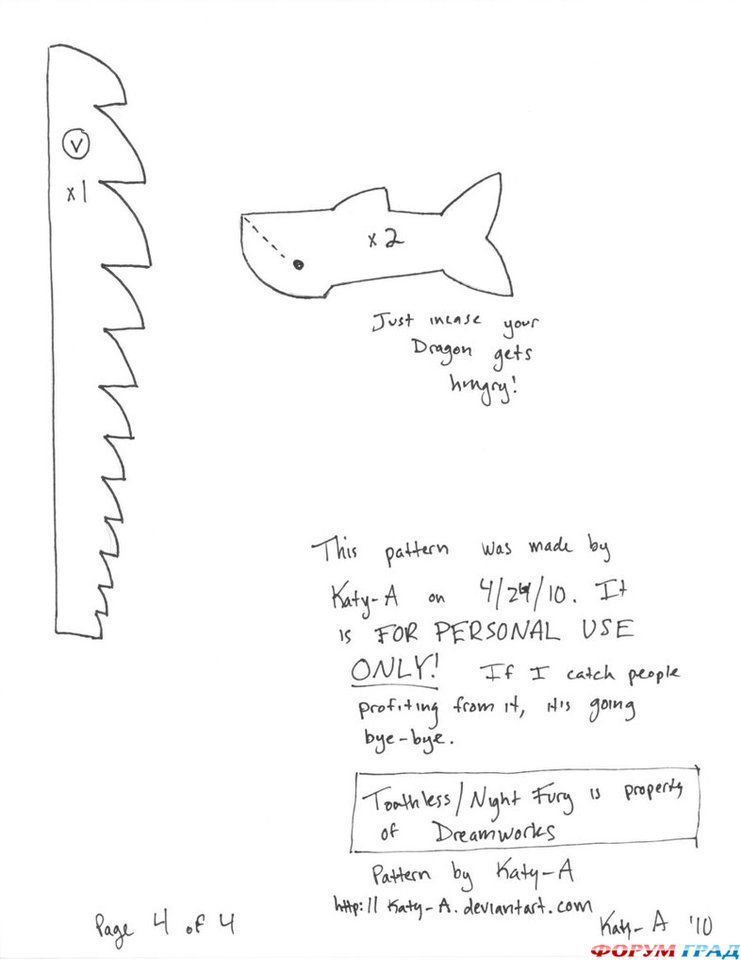 V
x1
x2
Just incase your
Dragon gets
hungry!
This pattern was made by
Katy-A on 4/24/10. It
is FOR PERSONAL USE
ONLY! If I catch people
profiting from it, it's going
bye-bye.
Toothless/Night Fury is property
of Dreamworks
Pattern by Katy-A
http://Katy-A.deviantart.com
Page 4 of 4
Katy-A '10
ФОРУМ ГРАД